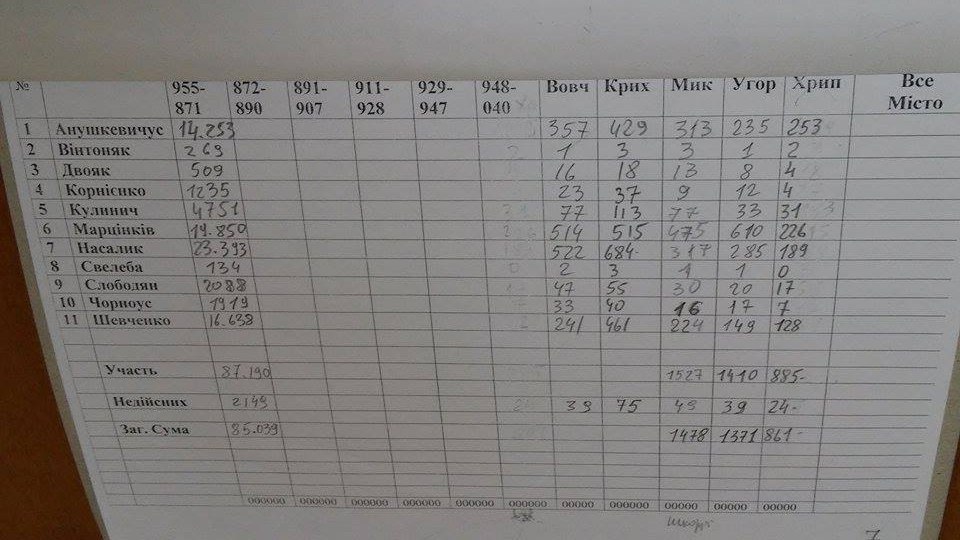 № 955-871 872-890 891-907 911-928 929-947 948-040 Вовч Крих Мик Угор Хрип Все Місто
1 Анушкевичус 14.253 357 429 313 235 253
2 Вінтоняк 269 1 3 3 1 2
3 Двояк 509 16 18 13 8 4
4 Корнієнко 1235 23 37 9 12 4
5 Кулинич 4751 77 113 77 33 31
6 Марцінків 19.850 514 515 475 610 226
7 Насалик 23.393 522 684 317 285 189
8 Свелеба 134 2 3 1 1 0
9 Слободян 2088 47 55 30 20 17
10 Чорноус 1919 33 40 16 17 7
11 Шевченко 16.638 241 461 224 149 128
Участь 87.190 1527 1410 885-
Недійсних 2149 39 75 49 39 24-
Заг. Сума 85.039 1478 1371 861-
000000 000000 000000 000000 000000 000000 00000 00000 00000 00000 00000
7